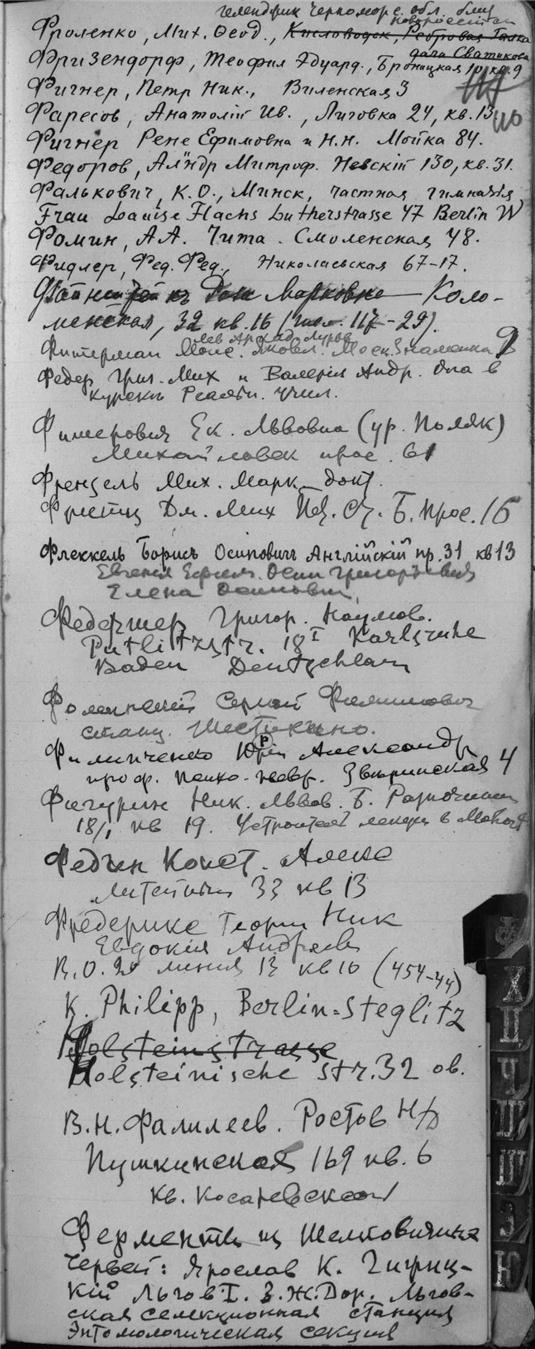 Геленджик Черномор с. обл. близ
Новороссийска
Фроленко, Мих. Ѳеод., Кисловодск, Ребровая Балка
дача Сватикова
Фризендорф, Теофил Эдуард., Бронницкая кв. 9
Фигнер, Петр Ник., Виленская 3
Фаресов, Анатолій Ив., Лиговка 24, кв. 13
Фигнер Рене Ефимовна и Н.Н. Мойка 84.
Федоров, Ал'ндр Митроф. Невскій 130, кв. 31.
Фалькович, К.О., Минск, частная гимназія
Frau Louise Flachs Lutherstrasse 47 Berlin W
Фомин, А.А. Чита. Смоленская 48.
Фидлер, Фед. Фед., Николаевская 67-17.
Марковне Коло-
менская, 32 кв. 16 (тел. 117-29).
Фитерман Моис. Яковл. Моск. Знаменка 9
Федер Григ. Мих и Валерія Андр. Оба в
курскъ Реальн. Учил.
Ек. Львовна (ур. Поляк)
Михайловск прос. 61
Френзель Мих. Марк. докт.
Дм. Мих Б. прос. 16
Флеккель Борисъ Осиповичъ Англійскій пр. 31 кв 13
Евгенія Ефрем. Осип Григорьевич
Елена Осиповн
Григор. Наумов.
Putlitzstr. 18 I Karlsruhe
Baden Deutschlan
Сергей Филиппович
станц. Шестикино.
Филипченко Юрій Александр
проф. психо-невр. Звѣринская 4
Фигурин Ник. Львов. Б. Разночин
18/1 кв 19. Устроитель лекций в
Федин Конст. Алекс
Литейный 33 кв 13
Фредерикс Георгий Ник
Евдокія Андреев
В.О. 20 линия 13 кв 16 (454-44)
K. Philipp, Berlin-Steglitz
Holsteinstrasse
Holsteinische str. 32 ов.
В.Н. Фалилеев. Ростов н/Д
Пушкинская 169 кв. 6
кв. Косаревской
Ферменты из Шелковичных
Червей: Ярослав К.
кій Льгов I. З.Ж.Дор. Льгов-
ская селекционная станция
Энтомологическая секция
Ф
Х
Ц
Ч
Ш
Щ
Э
Ю